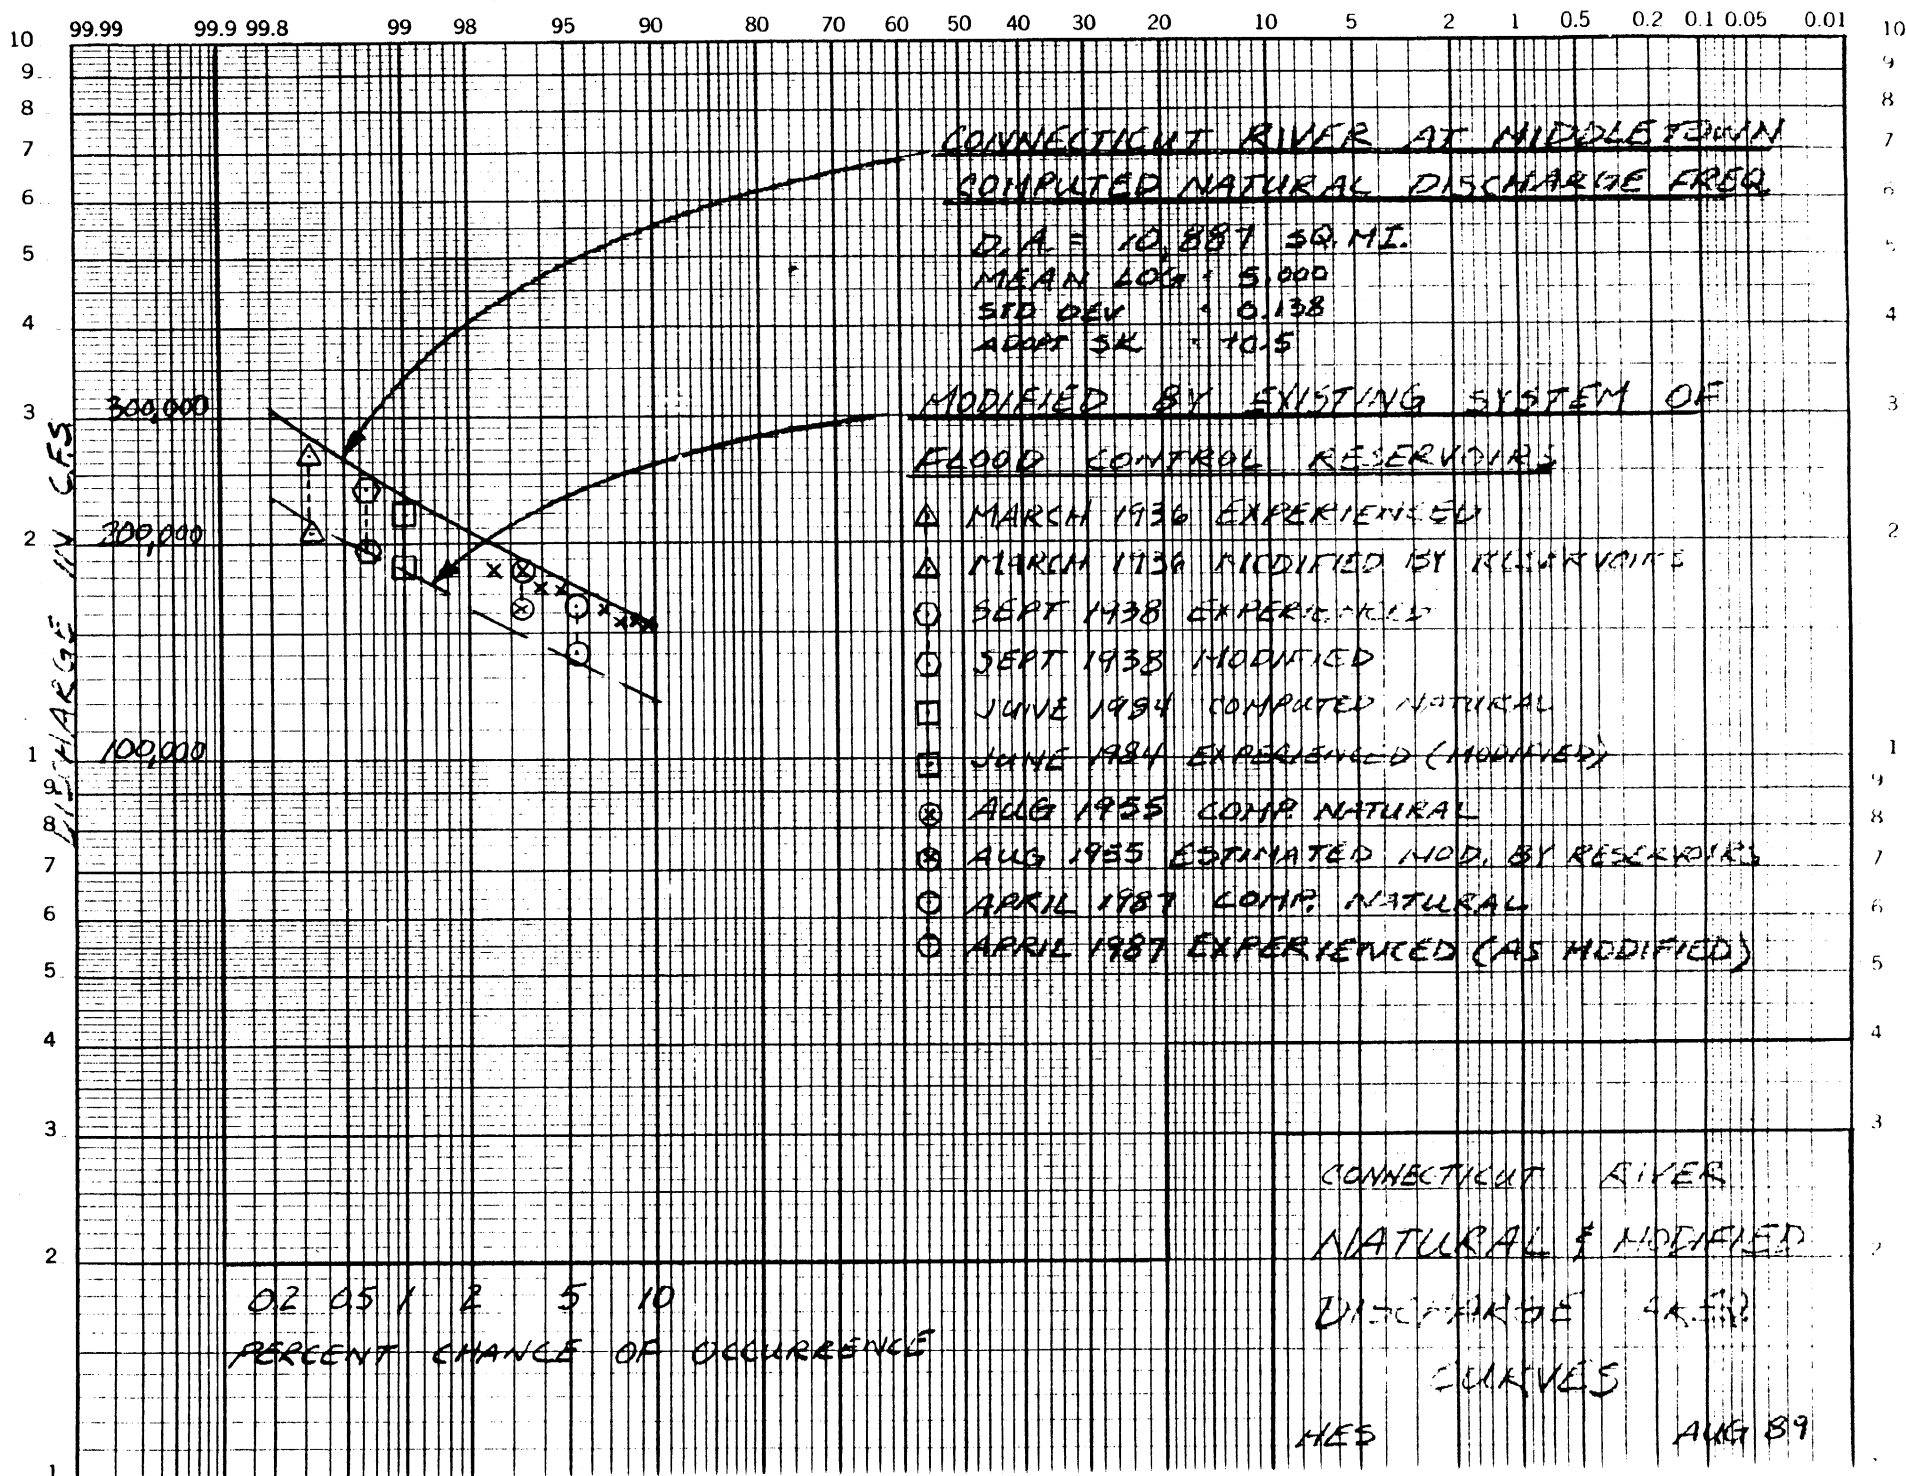 99.99 99.9 99.8 99 98 95 90 80 70 60 50 40 30 20 10 5 2 1 0.5 0.2 0.1 0.05 0.01
10 10
9 9
8 8
7 7
6 6
5 5
4 4
3 3
2 2
1 1
9 9
8 8
7 7
6 6
5 5
4 4
3 3
2 2
1
DISCHARGE IN C.F.S.
300,000
200,000
100,000
CONNECTICUT RIVER AT MIDDLETOWN
COMPUTED NATURAL DISCHARGE FREQ
D.A. = 10,887 SQ. MI.
MEAN LOG = 5.000
STD DEV = 0.138
ADOPT SK = +0.5
MODIFIED BY EXISTING SYSTEM OF
FLOOD CONTROL RESERVOIRS
MARCH 1936 EXPERIENCED
MARCH 1936 MODIFIED BY RESERVOIRS
SEPT 1938 EXPERIENCED
SEPT 1938 MODIFIED
JUNE 1984 COMPUTED NATURAL
JUNE 1984 EXPERIENCED (MODIFIED)
AUG 1955 COMP. NATURAL
AUG 1955 ESTIMATED MOD. BY RESERVOIRS
APRIL 1987 COMP. NATURAL
APRIL 1987 EXPERIENCED (AS MODIFIED)
0.2 0.5 1 2 5 10
PERCENT CHANCE OF OCCURRENCE
CONNECTICUT RIVER
NATURAL & MODIFIED
DISCHARGE FREQ
CURVES
HES AUG 89